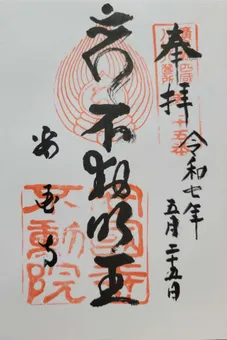 奉拝
令和七年
五月二十五日
不動明王
安国寺
不動院